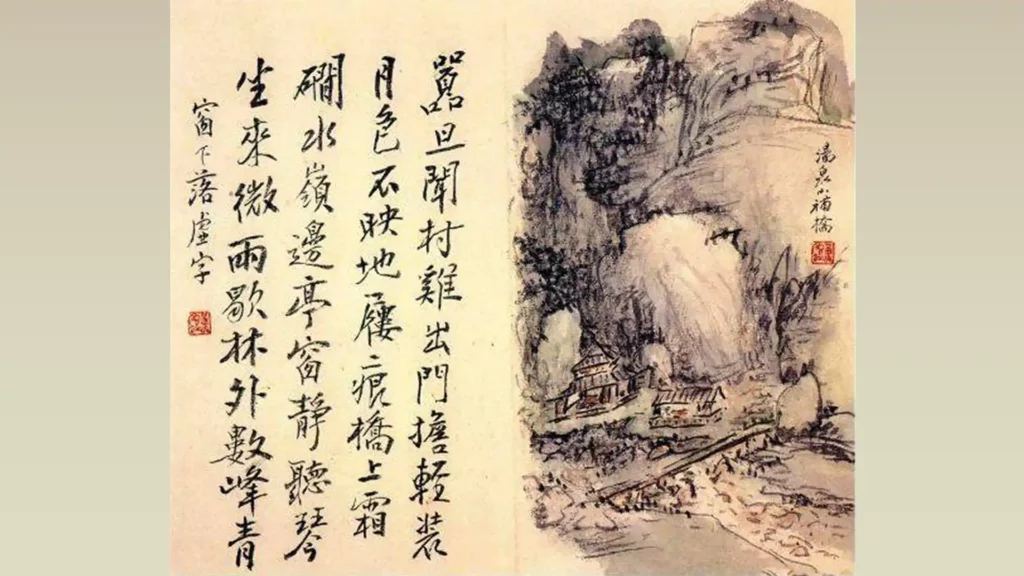 泉橋
囂旦聞村雞出門擔輕裝
月色不映地屨痕橋上霜
磵水嶺邊亭窗靜聽琴
坐來微雨歇林外數峰青
窗下落虛字